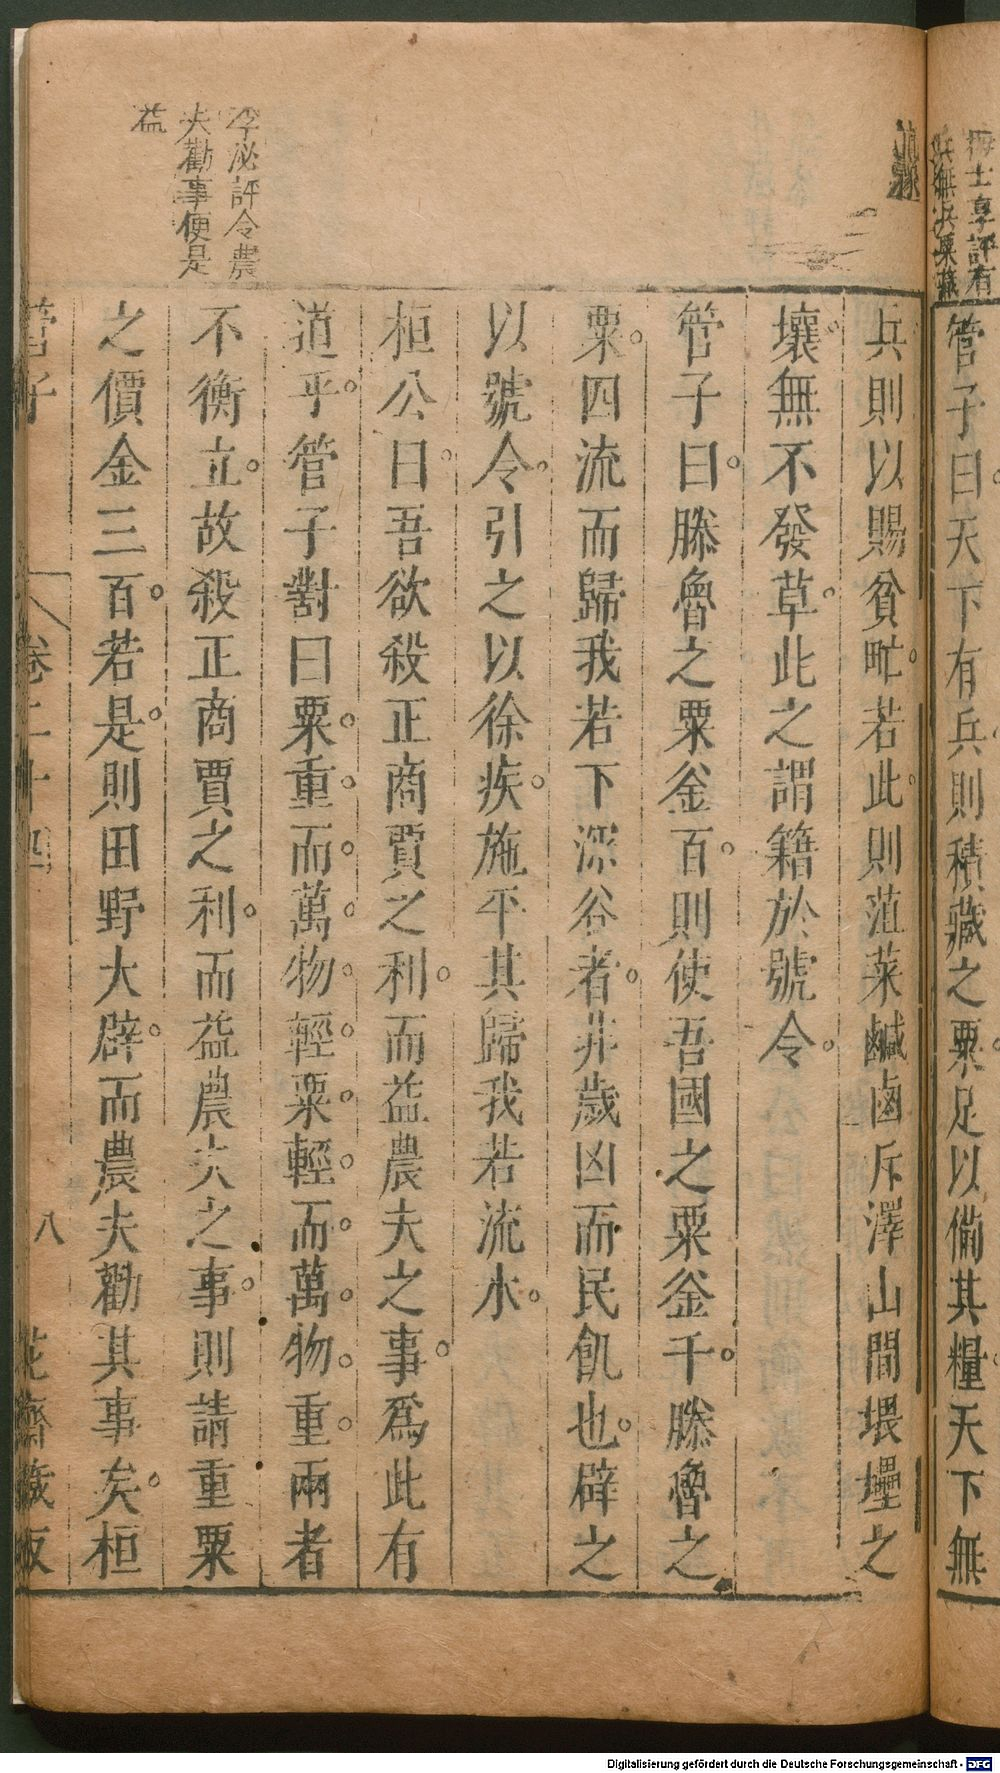 梅士享評有
兵無決粟藏
管子曰天下有兵則積藏之粟足以備其糧天下無
兵則以賜貧甿若此則菹菜鹹鹵斥澤山間堁壘之
壤無不發草此之謂籍於號令
管子曰滕魯之粟釜百則使吾國之粟釜千滕魯之
粟四流而歸我若下深谷者非歲凶而民飢也辟之
以號令引之以徐疾施平其歸我若流水
桓公曰吾欲殺正商賈之利而益農夫之事爲此有
道乎管子對曰粟重而萬物輕粟輕而萬物重兩者
不衡立故殺正商賈之利而益農夫之事則請重粟
之價金三百若是則田野大辟而農夫勸其事矣桓
李泌評令農
夫勸事便是
益
管子
卷二十四
八
花齋藏板
Digitalisierung gefördert durch die Deutsche Forschungsgemeinschaft - DFG